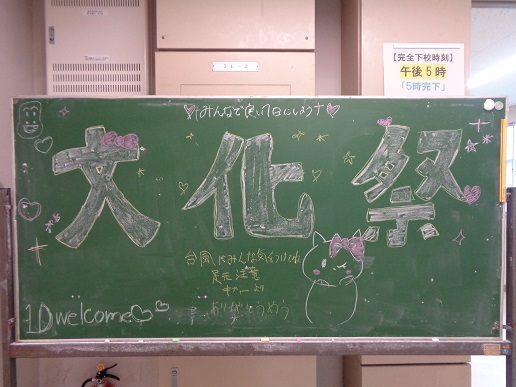 【完全下校時刻】
午後5時
「5時完下」
みんなで良い1日にしよう
文化祭
台風はみんな気をつけてね
足元注意
ありがとう
1D welcome